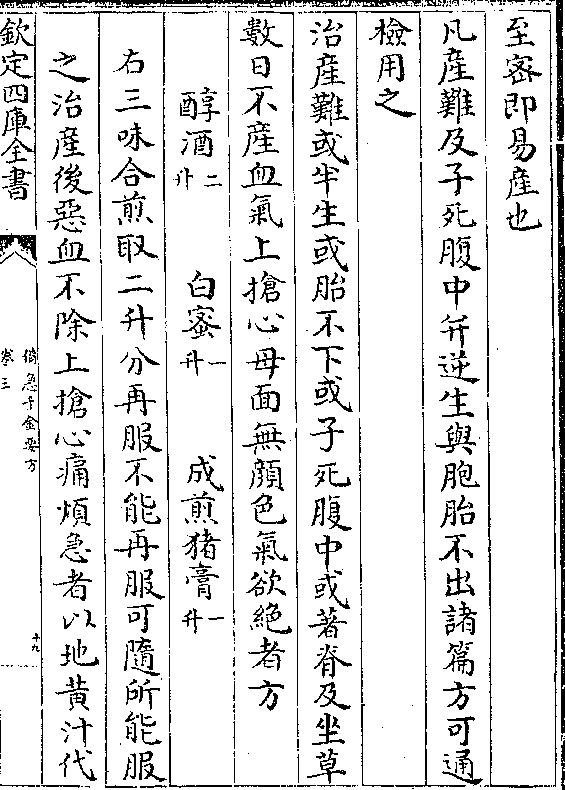 至密即易產也
凡產難及子死腹中并逆生與胞胎不出諸篇方可通
檢用之
治產難或半生或胎不下或子死腹中或著脊及坐草
數日不產血氣上搶心母面無顔色氣欲絶者方
醇酒二升 白蜜一升 成煎猪膏一升
右三味合煎取二升分再服不能再服可隨所能服
之治產後惡血不除上搶心痛煩急者以地黄汁代
欽定四庫全書
備急千金要方
卷三
十九